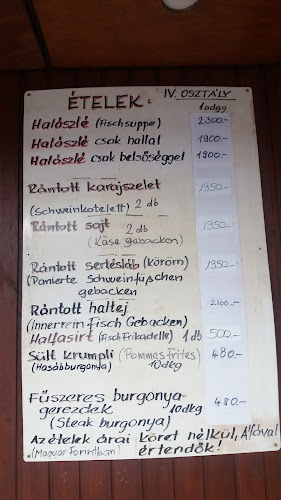 ÉTELEK: IV. OSZTÁLY
1 adag
Halászlé (Fischsuppe) 2300.-
Halászlé csak hallal 1900.-
Halászlé csak belsőséggel 1900.-
Rántott karajszelet 1950.-
(Schweinkotelett) 2 db
Rántott sajt 2 db 1950.-
(Käse gebacken)
Rántott sertésláb (köröm) 1950.-
(Panierte Schweinfüßchen
gebacken
Rántott haltej 2100.-
(Innerrein Fisch Gebacken)
Halfasírt (Fisch Frikadelle) 1 db 500.-
Sült krumpli (Pommas Frites) 480.-
(Hasábburgonya) 10dkg
Fűszeres burgonya-
gerezdek 10dkg 480.-
(Steak burgonya)
Az ételek árai köret nélkül, Áfával
(Magyar Forintban) értendők!